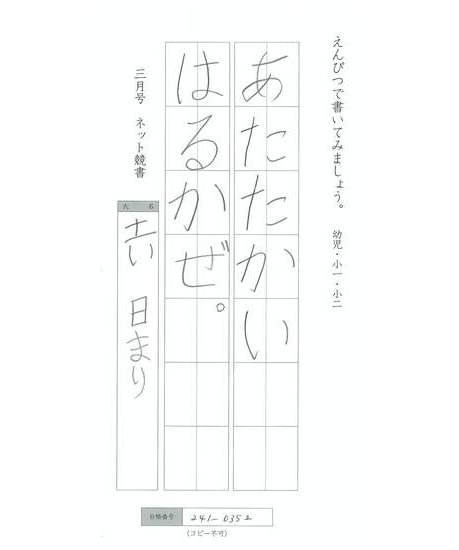 えんぴつで書いてみましょう。　幼児・小一・小二
あたたかい
はるかぜ。
三月号　ネット競書
氏名
土い　日まり
台帳番号　241-0352
(コピー不可)